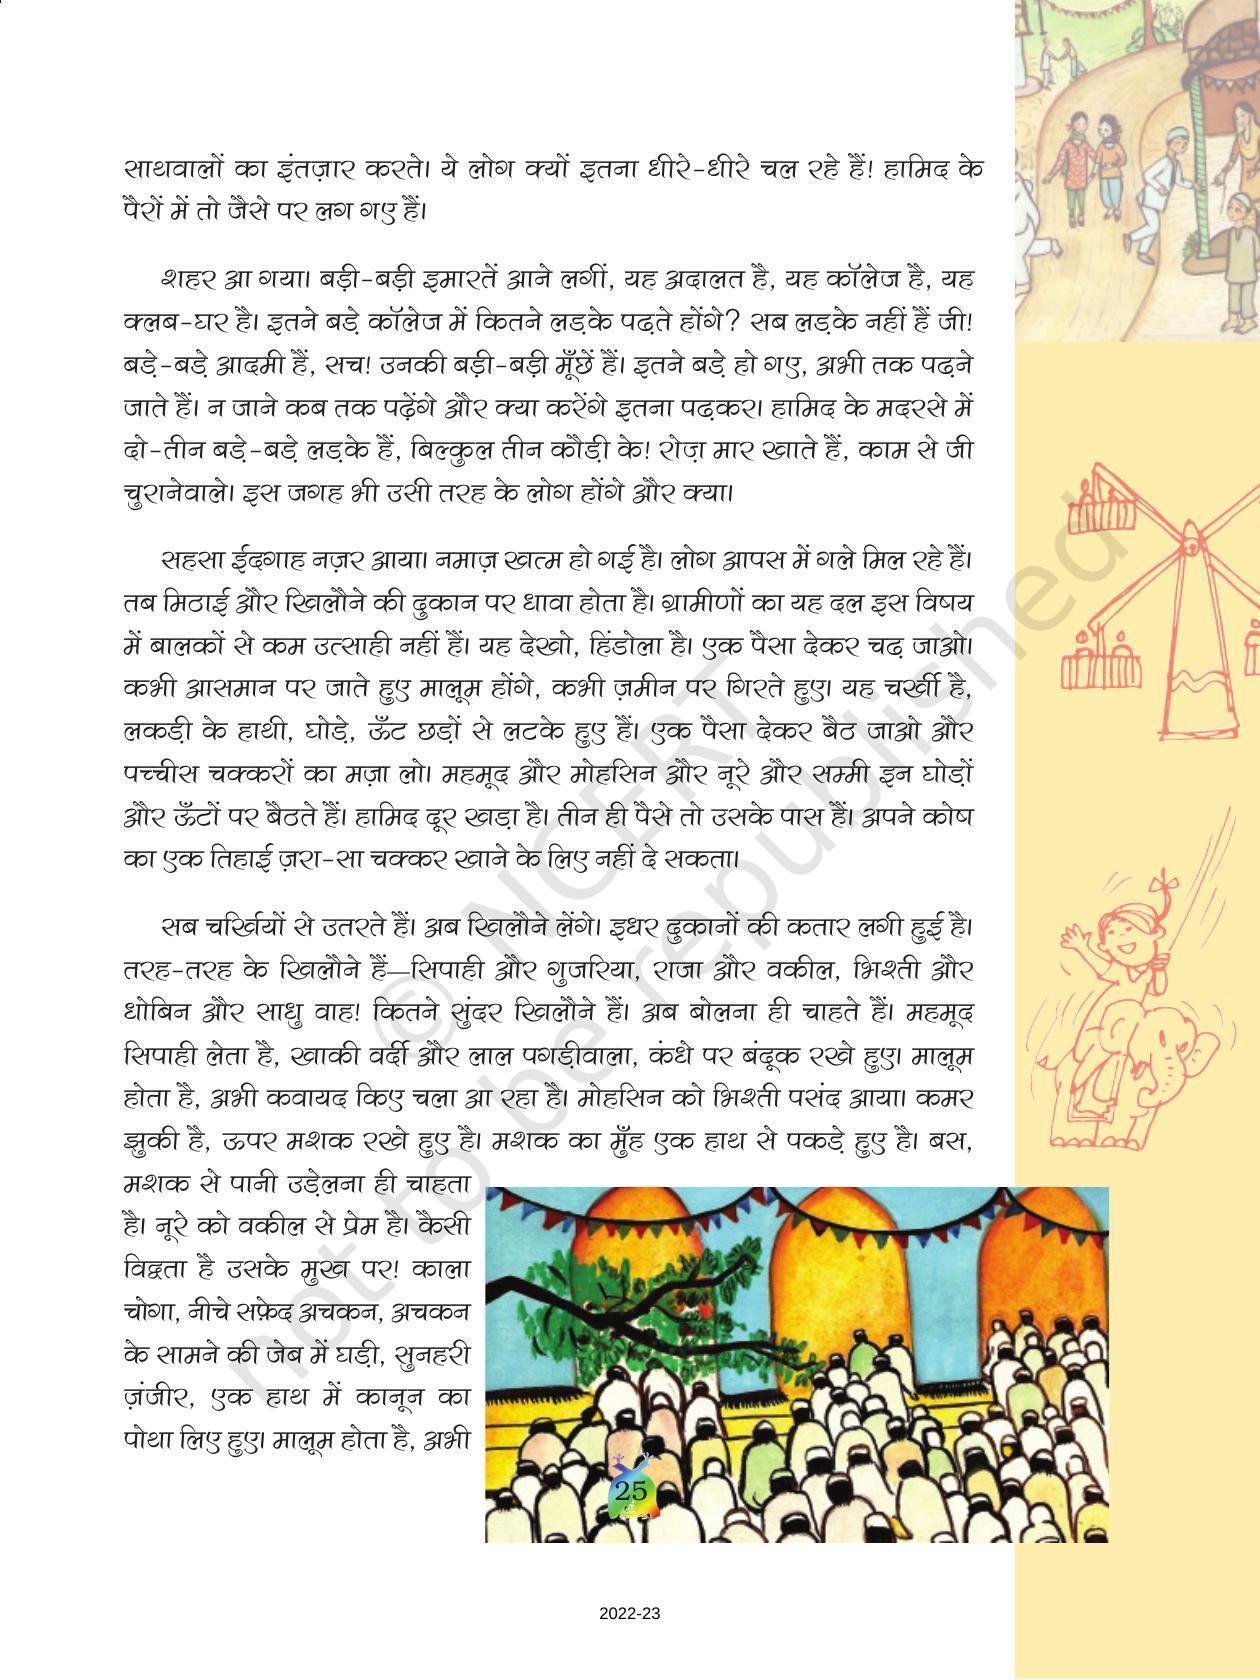 साथवालों का इंतज़ार करते। ये लोग क्यों इतना धीरे-धीरे चल रहे हैं! हामिद के
पैरों में तो जैसे पर लग गए हैं।
शहर आ गया। बड़ी-बड़ी इमारतें आने लगीं, यह अदालत है, यह कॉलेज है, यह
क्लब-घर है। इतने बड़े कॉलेज में कितने लड़के पढ़ते होंगे? सब लड़के नहीं हैं जी!
बड़े-बड़े आदमी हैं, सच! उनकी बड़ी-बड़ी मूँछें हैं। इतने बड़े हो गए, अभी तक पढ़ने
जाते हैं। न जाने कब तक पढ़ेंगे और क्या करेंगे इतना पढ़कर। हामिद के मदरसे में
दो-तीन बड़े-बड़े लड़के हैं, बिल्कुल तीन कौड़ी के! रोज़ मार खाते हैं, काम से जी
चुरानेवाले। इस जगह भी उसी तरह के लोग होंगे और क्या।
सहसा ईदगाह नज़र आया। नमाज़ खत्म हो गई है। लोग आपस में गले मिल रहे हैं।
तब मिठाई और खिलौने की दुकान पर धावा होता है। ग्रामीणों का यह दल इस विषय
में बालकों से कम उत्साही नहीं हैं। यह देखो, हिंडोला है। एक पैसा देकर चढ़ जाओ।
कभी आसमान पर जाते हुए मालूम होंगे, कभी ज़मीन पर गिरते हुए। यह चर्खी है,
लकड़ी के हाथी, घोड़े, ऊँट छड़ों से लटके हुए हैं। एक पैसा देकर बैठ जाओ और
पच्चीस चक्करों का मज़ा लो। महमूद और मोहसिन और नूरे और सम्मी इन घोड़ों
और ऊँटों पर बैठते हैं। हामिद दूर खड़ा है। तीन ही पैसे तो उसके पास हैं। अपने कोष
का एक तिहाई ज़रा-सा चक्कर खाने के लिए नहीं दे सकता।
सब चर्खियों से उतरते हैं। अब खिलौने लेंगे। इधर दुकानों की कतार लगी हुई है।
तरह-तरह के खिलौने हैं—सिपाही और गुजरिया, राजा और वकील, भिश्ती और
धोबिन और साधु वाह! कितने सुंदर खिलौने हैं। अब बोलना ही चाहते हैं। महमूद
सिपाही लेता है, खाकी वर्दी और लाल पगड़ीवाला, कंधे पर बंदूक रखे हुए। मालूम
होता है, अभी कवायद किए चला आ रहा है। मोहसिन को भिश्ती पसंद आया। कमर
झुकी है, ऊपर मशक रखे हुए है। मशक का मुँह एक हाथ से पकड़े हुए है। बस,
मशक से पानी उड़ेलना ही चाहता
है। नूरे को वकील से प्रेम है। कैसी
विद्वता है उसके मुख पर! काला
चोगा, नीचे सफ़ेद अचकन, अचकन
के सामने की जेब में घड़ी, सुनहरी
ज़ंजीर, एक हाथ में कानून का
पोथा लिए हुए। मालूम होता है, अभी
© NCERT
not to be republished
25
2022-23